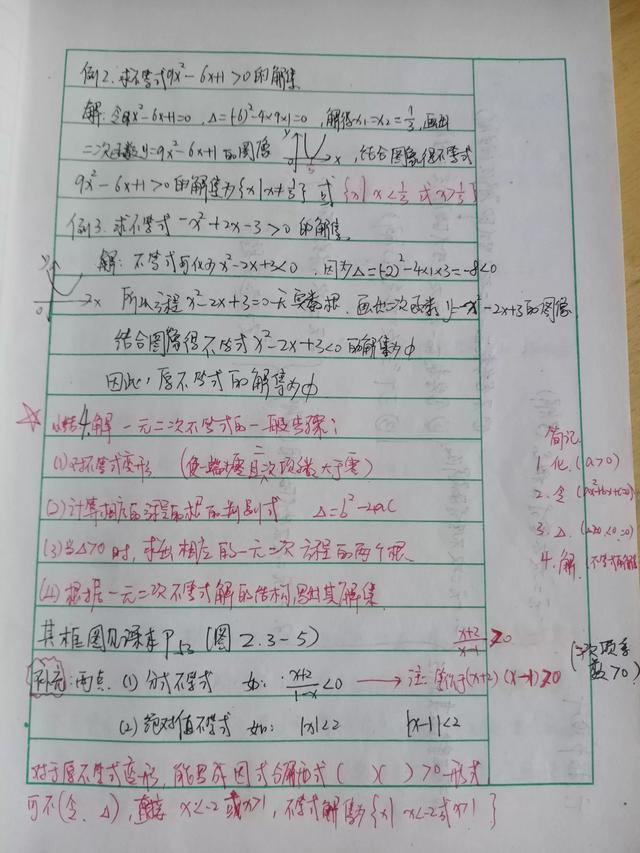 例2. 求不等式9x²-6x+1>0的解集
解: 令9x²-6x+1=0, Δ=(-6)²-4×9×1=0, 解得x₁=x₂=1/3, 画出
二次函数y=9x²-6x+1的图像 y 0 1/3 x, 结合图像得不等式
9x²-6x+1>0的解集为{x|x≠1/3} 或{x|x<1/3 或x>1/3}
例3. 求不等式 -x²+2x-3>0 的解集
解: 不等式可化为x²-2x+3<0, 因为Δ=(-2)²-4×1×3=-8<0
y 0 x 所以方程x²-2x+3=0无实数根. 画出二次函数y=x²-2x+3的图像
结合图像得不等式x²-2x+3<0的解集为φ
因此, 原不等式的解集为φ
小结4. 解一元二次不等式的一般步骤:
(1)对不等式变形 (使一端为零且二次项系数大于零)
(2)计算相应的方程的根的判别式 Δ=b²-2ac
(3)当Δ>0时, 求出相应的一元二次方程的两个根.
(4)根据一元二次不等式解的结构, 写出其解集
简记
1. 化 (a>0)
2. 令 (ax²+bx+c=0)
3. Δ. (Δ>0, <0, =0)
4. 解. (不等式的解集)
其框图见课本P₅₃ (图2.3-5)
(x+2)/(x-1)>0
补充: 两点. (1) 分式不等式 如: (x+2)/(1-x)<0 → 注: 等价于(x+2)(x-1)>0
(二次项系数>0)
(2) 绝对值不等式 如: |x|<2 |x-1|<2
对于原不等式变形, 能写成因式分解形式( )( )>0 形式
可不(令, Δ), 直接 x<-2 或x>1, 不等式解集为{x|x<-2或x>1}